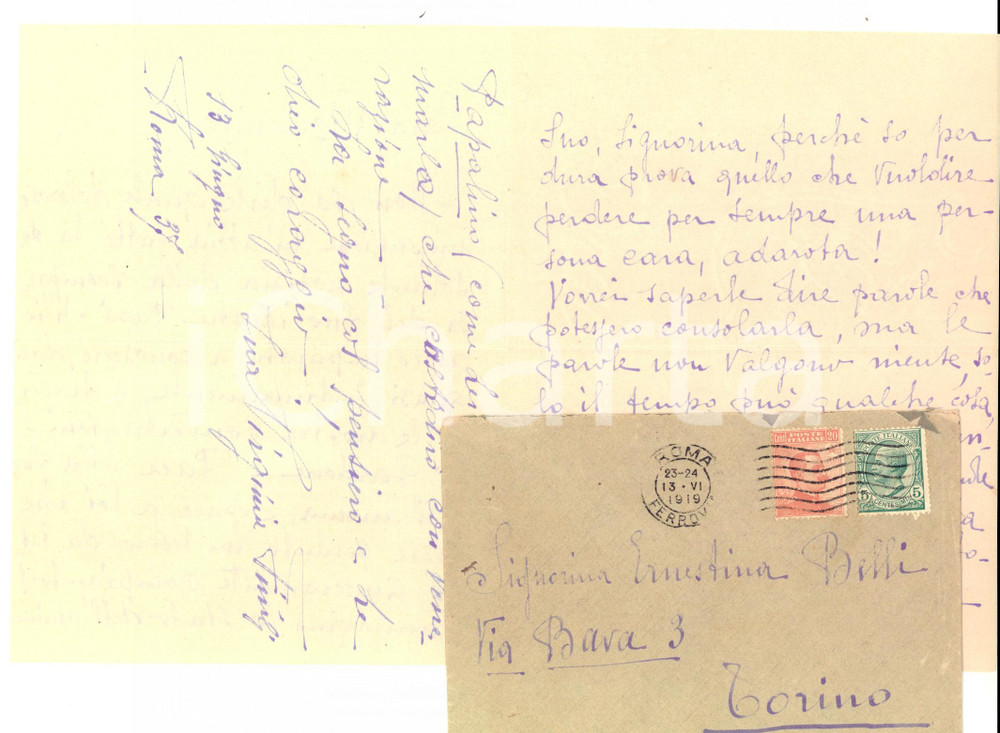 Suo, Signorina, perchè so per
dura prova quello che vuoldire
perdere per sempre una per-
sona cara, adarota!
Vorrei saperle dire parole che
potessero consolarla, ma le
parole non valgono niente, so-
lo il tempo può qualche cosa,
Papalino (come
che cossciamo con vene
razione
col pensiero e le
dico coraggio
Sua Virginia
13 Giugno
Roma
ROMA
23-24
13 · VI
1919
FERROV
POSTE
ITALIANE
20
POSTE ITALIANE
5 5
CENTESIMI
Signorina Ernestina Belli
Via Bava 3
Torino
iCharta